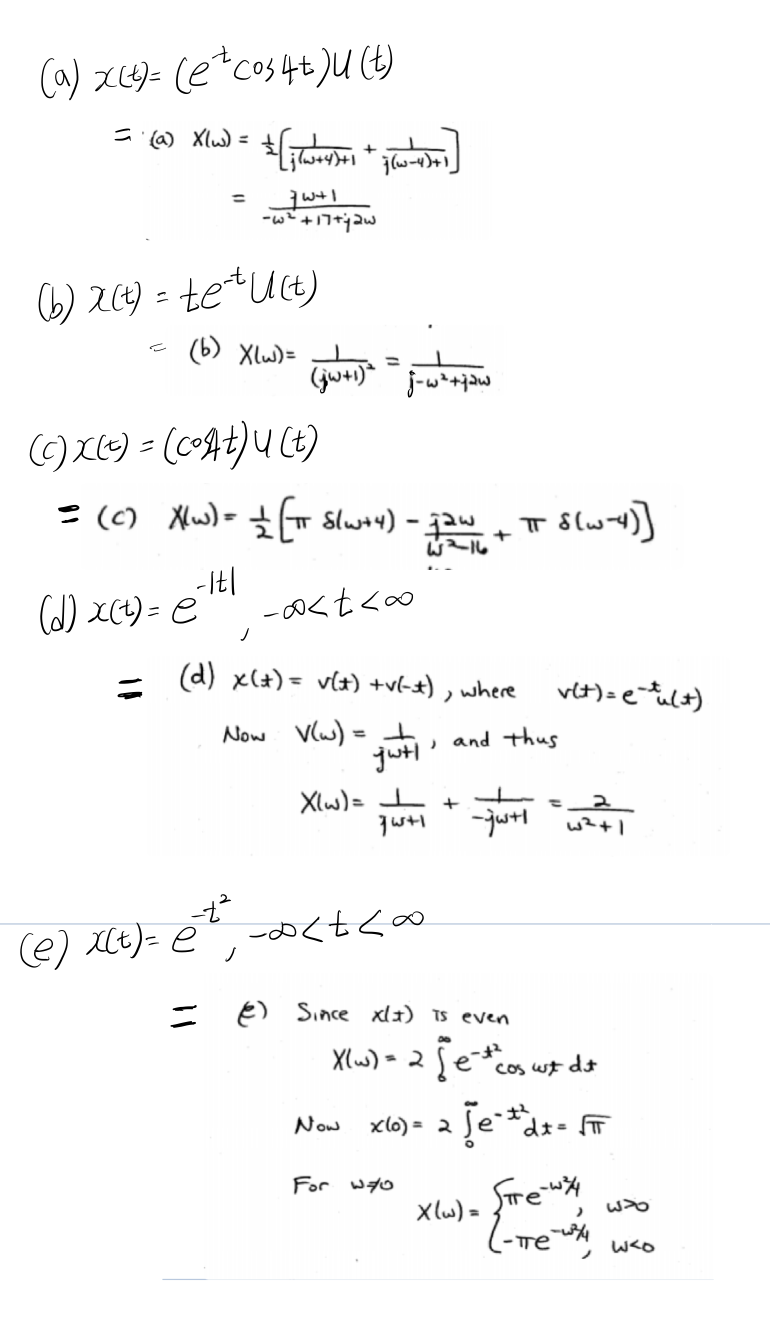 (a) x(t)= (e^-t cos4t)u(t)
= (a) X(ω) = 1/2[1/(j(ω+4)+1) + 1/(j(ω-4)+1)]
= (jω+1)/(-ω²+17+j2ω)
(b) x(t) = te^-t u(t)
= (b) X(ω)= 1/(jω+1)² = 1/(j-ω²+j2ω)
(c) x(t) = (cos4t)u(t)
= (c) X(ω) = 1/2[π δ(ω+4) - j2ω/(ω²-16) + π δ(ω-4)]
(d) x(t) = e^-|t|, -∞<t<∞
= (d) x(t) = v(t) +v(-t), where v(t)=e^-t u(t)
Now V(ω) = 1/(jω+1), and thus
X(ω)= 1/(jω+1) + 1/(-jω+1) = 2/(ω²+1)
(e) x(t)= e^-t², -∞<t<∞
= e) Since x(t) is even
X(ω) = 2 ∫₀^∞ e^-t² cos ωt dt
Now x(0) = 2 ∫₀^∞ e^-t² dt = √π
For ω≠0
X(ω) = { πe^-ω²/4, ω>0
-πe^-ω²/4, ω<0